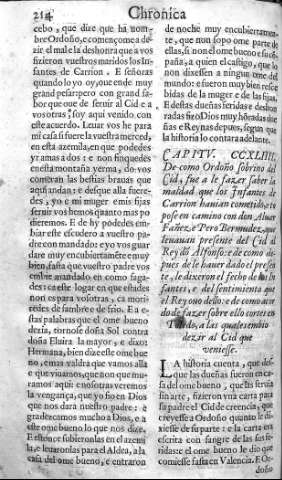 214
Chronica
cebo, que dize que ha nombre Ordoño, e començome a dezir
el male la deshonra que a vos
fizieron vuestros maridos los Infantes
de Carrion. E señoras
quando lo yo oy, oue en de muy
grand pesar pero con grand sabor
que oue de seruir al Cid e a
vos otras, soy aqui venido con
este acuerdo. Leuar vos he para
mi casa si fuere la vuestra merced,
en esta azemila, en que podedes
yr amas a dos: e non finquedes
en esta montaña yerma, do vos
comeran las bestias brauas que
aqui andan: e desque alla fueredes,
yo e mi muger e mis fijas
seruir vos hemos quanto mas podieremos.
E de hy podedes embiar
este escudero a vuestro padre
con mandado: e yo vos guardare
muy encubiertamēte e muy
bien, fasta que vuestro padre vos
embie mandado, en como fagades:
ca este logar en que estades
non es para vosotras, ca moriredes
de fambre e de frio. E a estas
palabras que el ome bueno
dezia, tornose doña Sol contra
doña Eluira la mayor, e dixo:
Hermana, bien dize este ome bueno,
e mas valdra que vamos alla
e que viuamos, que non que muramos
aqui: e nos otras veremos
la vengança, que yo fio en Dios
que nos dara nuestro padre: e
gradezcamos mucho a Dios, e a
este ome bueno lo que nos dize.
E estonce subieronlas en el azemila,
e leuaronlas para el Aldea, a la
casa del ome bueno, e entraron
de noche muy encubiertamente,
que non sopo ome parte de
ellas, si non el ome bueno e su compaña,
a quien el castigo, que lo
non dixessen a ningun ome del
mundo: e fueron muy bien rescebidas
de la muger e de las fijas.
E destas dueñas feridas e deshonradas
fizo Dios muy hōradas dueñas
e Reynas despues, segun que
la historia lo contara adelante.
CAPITV. CCXLIIII.
De como Ordoño sobrino del
Cid, fue a le fazer saber la
maldad que los Infantes de
Carrion hauian cometido, e topose
en camino con don Aluar
Fañez, e Pero Bermudez, que
leuauan presente del Cid al
Rey dō Alfonso: e de como despues
de le hauer dado el presente,
le dixeron el fecho de los Infantes,
e del sentimiento que
el Rey ouo dello: e de como acordo
de fazer sobre ello cortes en
Toledo, a las quales embio
dezir al Cid que
veniesse.
LA historia cuenta, que desque
las dueñas fueron en casa
del ome bueno, que les seruia
sin arte, fizieron vna carta para
su padre el Cid de creencia, que
creyesse a Ordoño quanto le dixiesse
de su parte: e la carta era
escrita con sangre de las sus feridas:
e el ome bueno le dio que
comiesse fasta en Valencia. E Ordoño